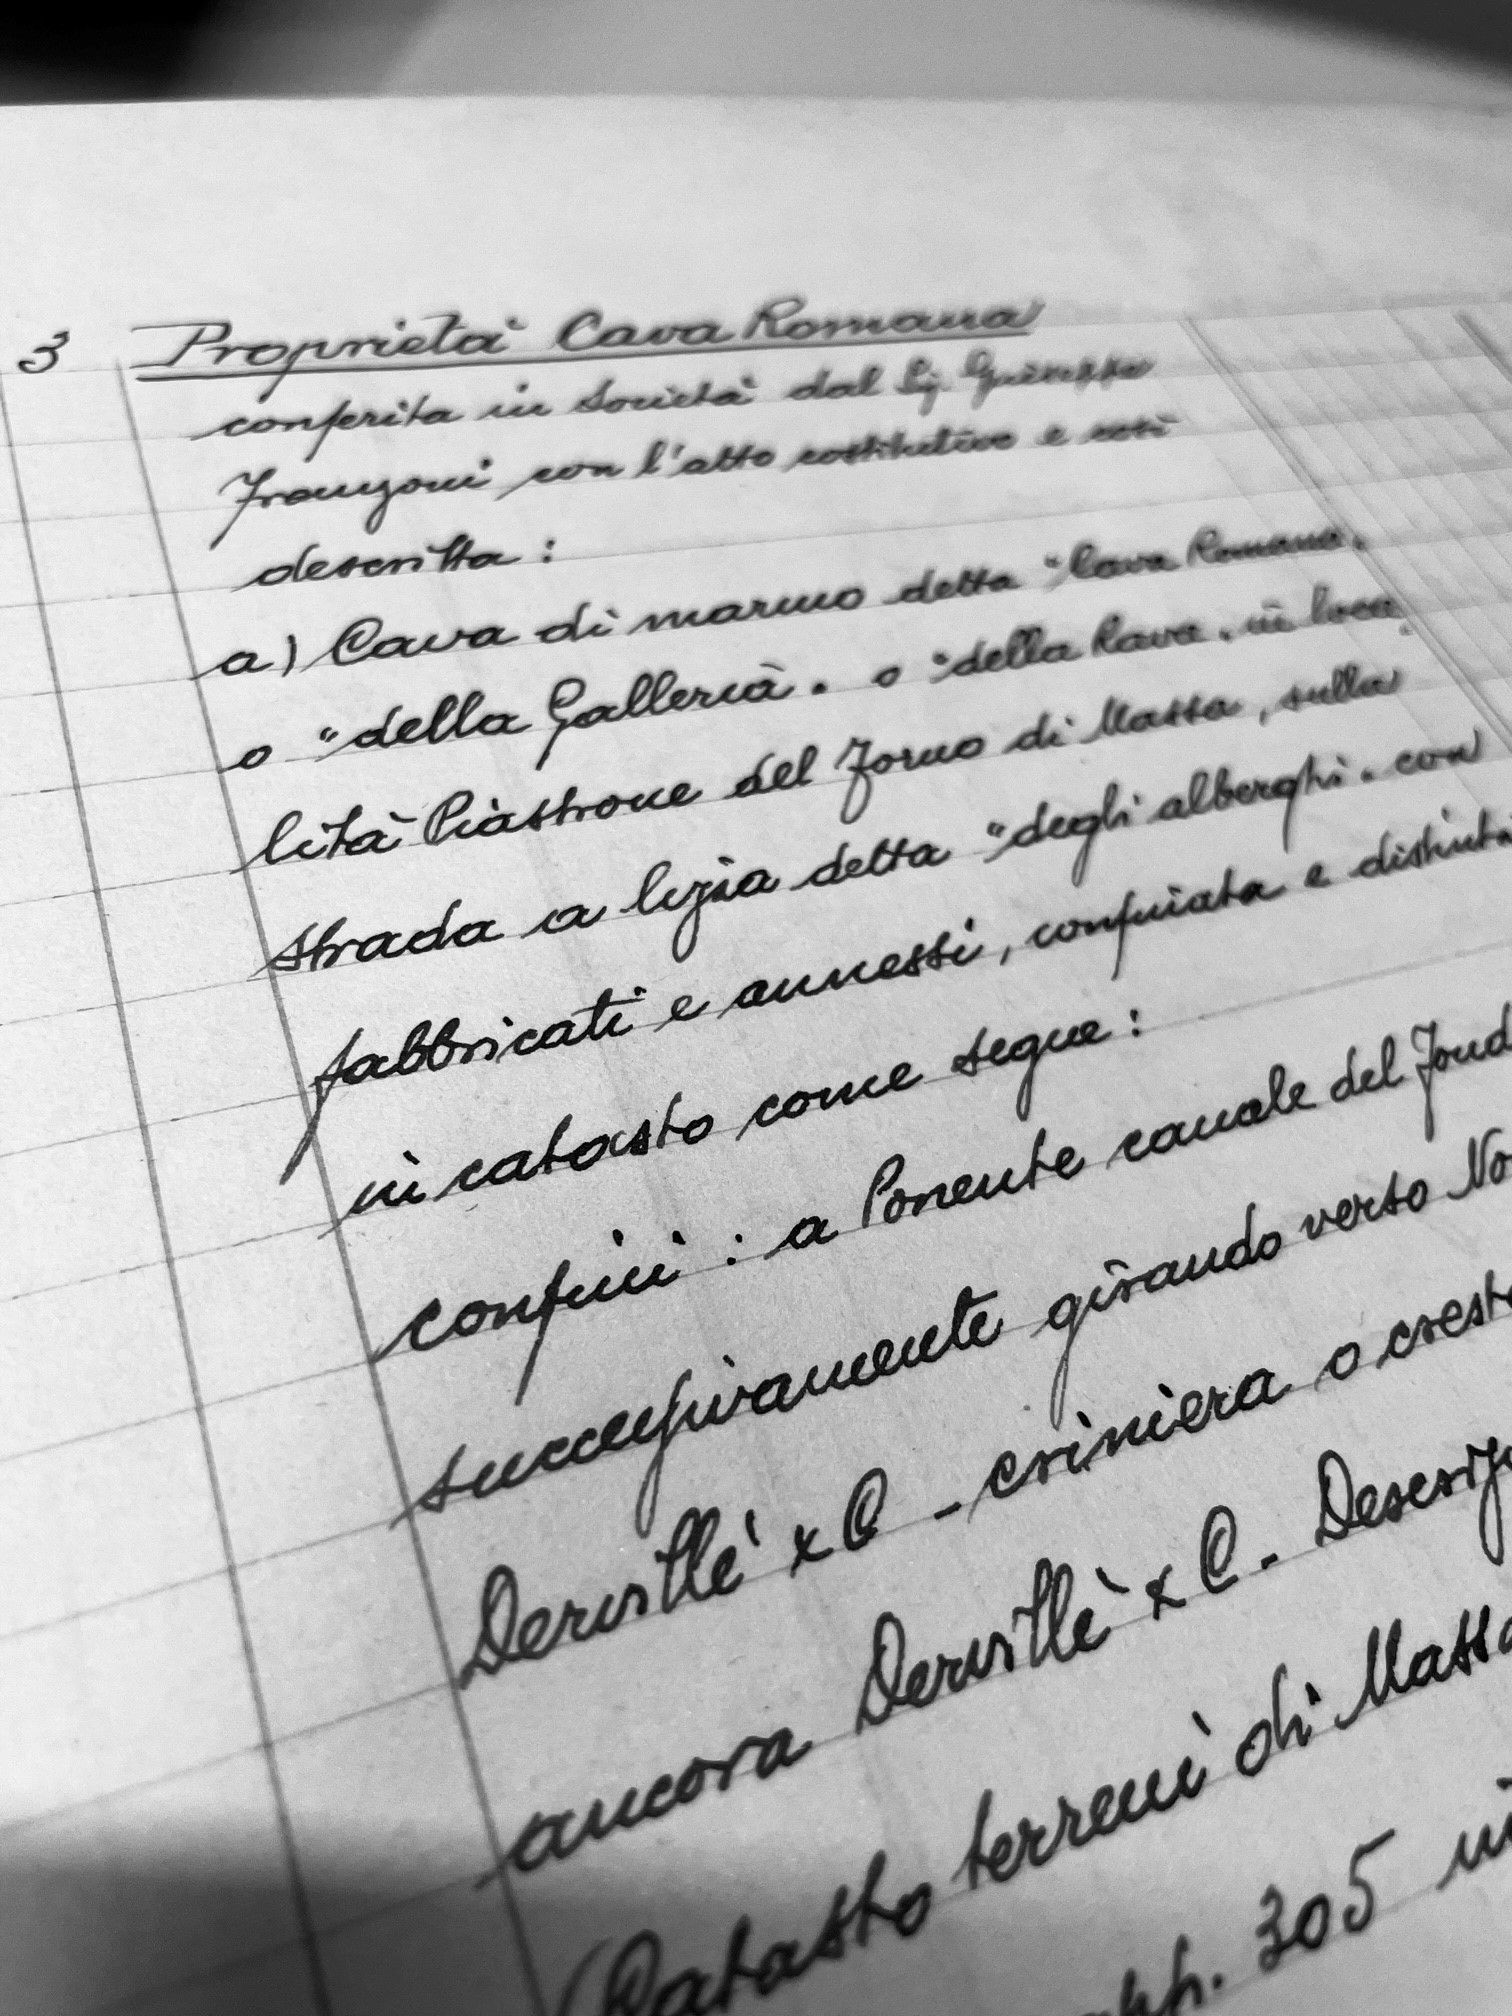 3 Proprietà Cava Romana
conferita in Società dal Sig. Giuseppe
Franzoni con l'atto costitutivo e così
descritta :
a) Cava di marmo detta "Cava Romana"
o "della Galleria" o "della Cava" in loca
lità Piastrone del Forno di Massa, sulla
strada a lizza detta "degli alberghi" con
fabbricati e annessi, confinata e distinta
in catasto come segue :
confini : a Ponente canale del Fond
successivamente girando verso No
Dervillè & C - criniera o crest
ancora Dervillè & C - Descriz
(Catasto terreni di Massa
305 in